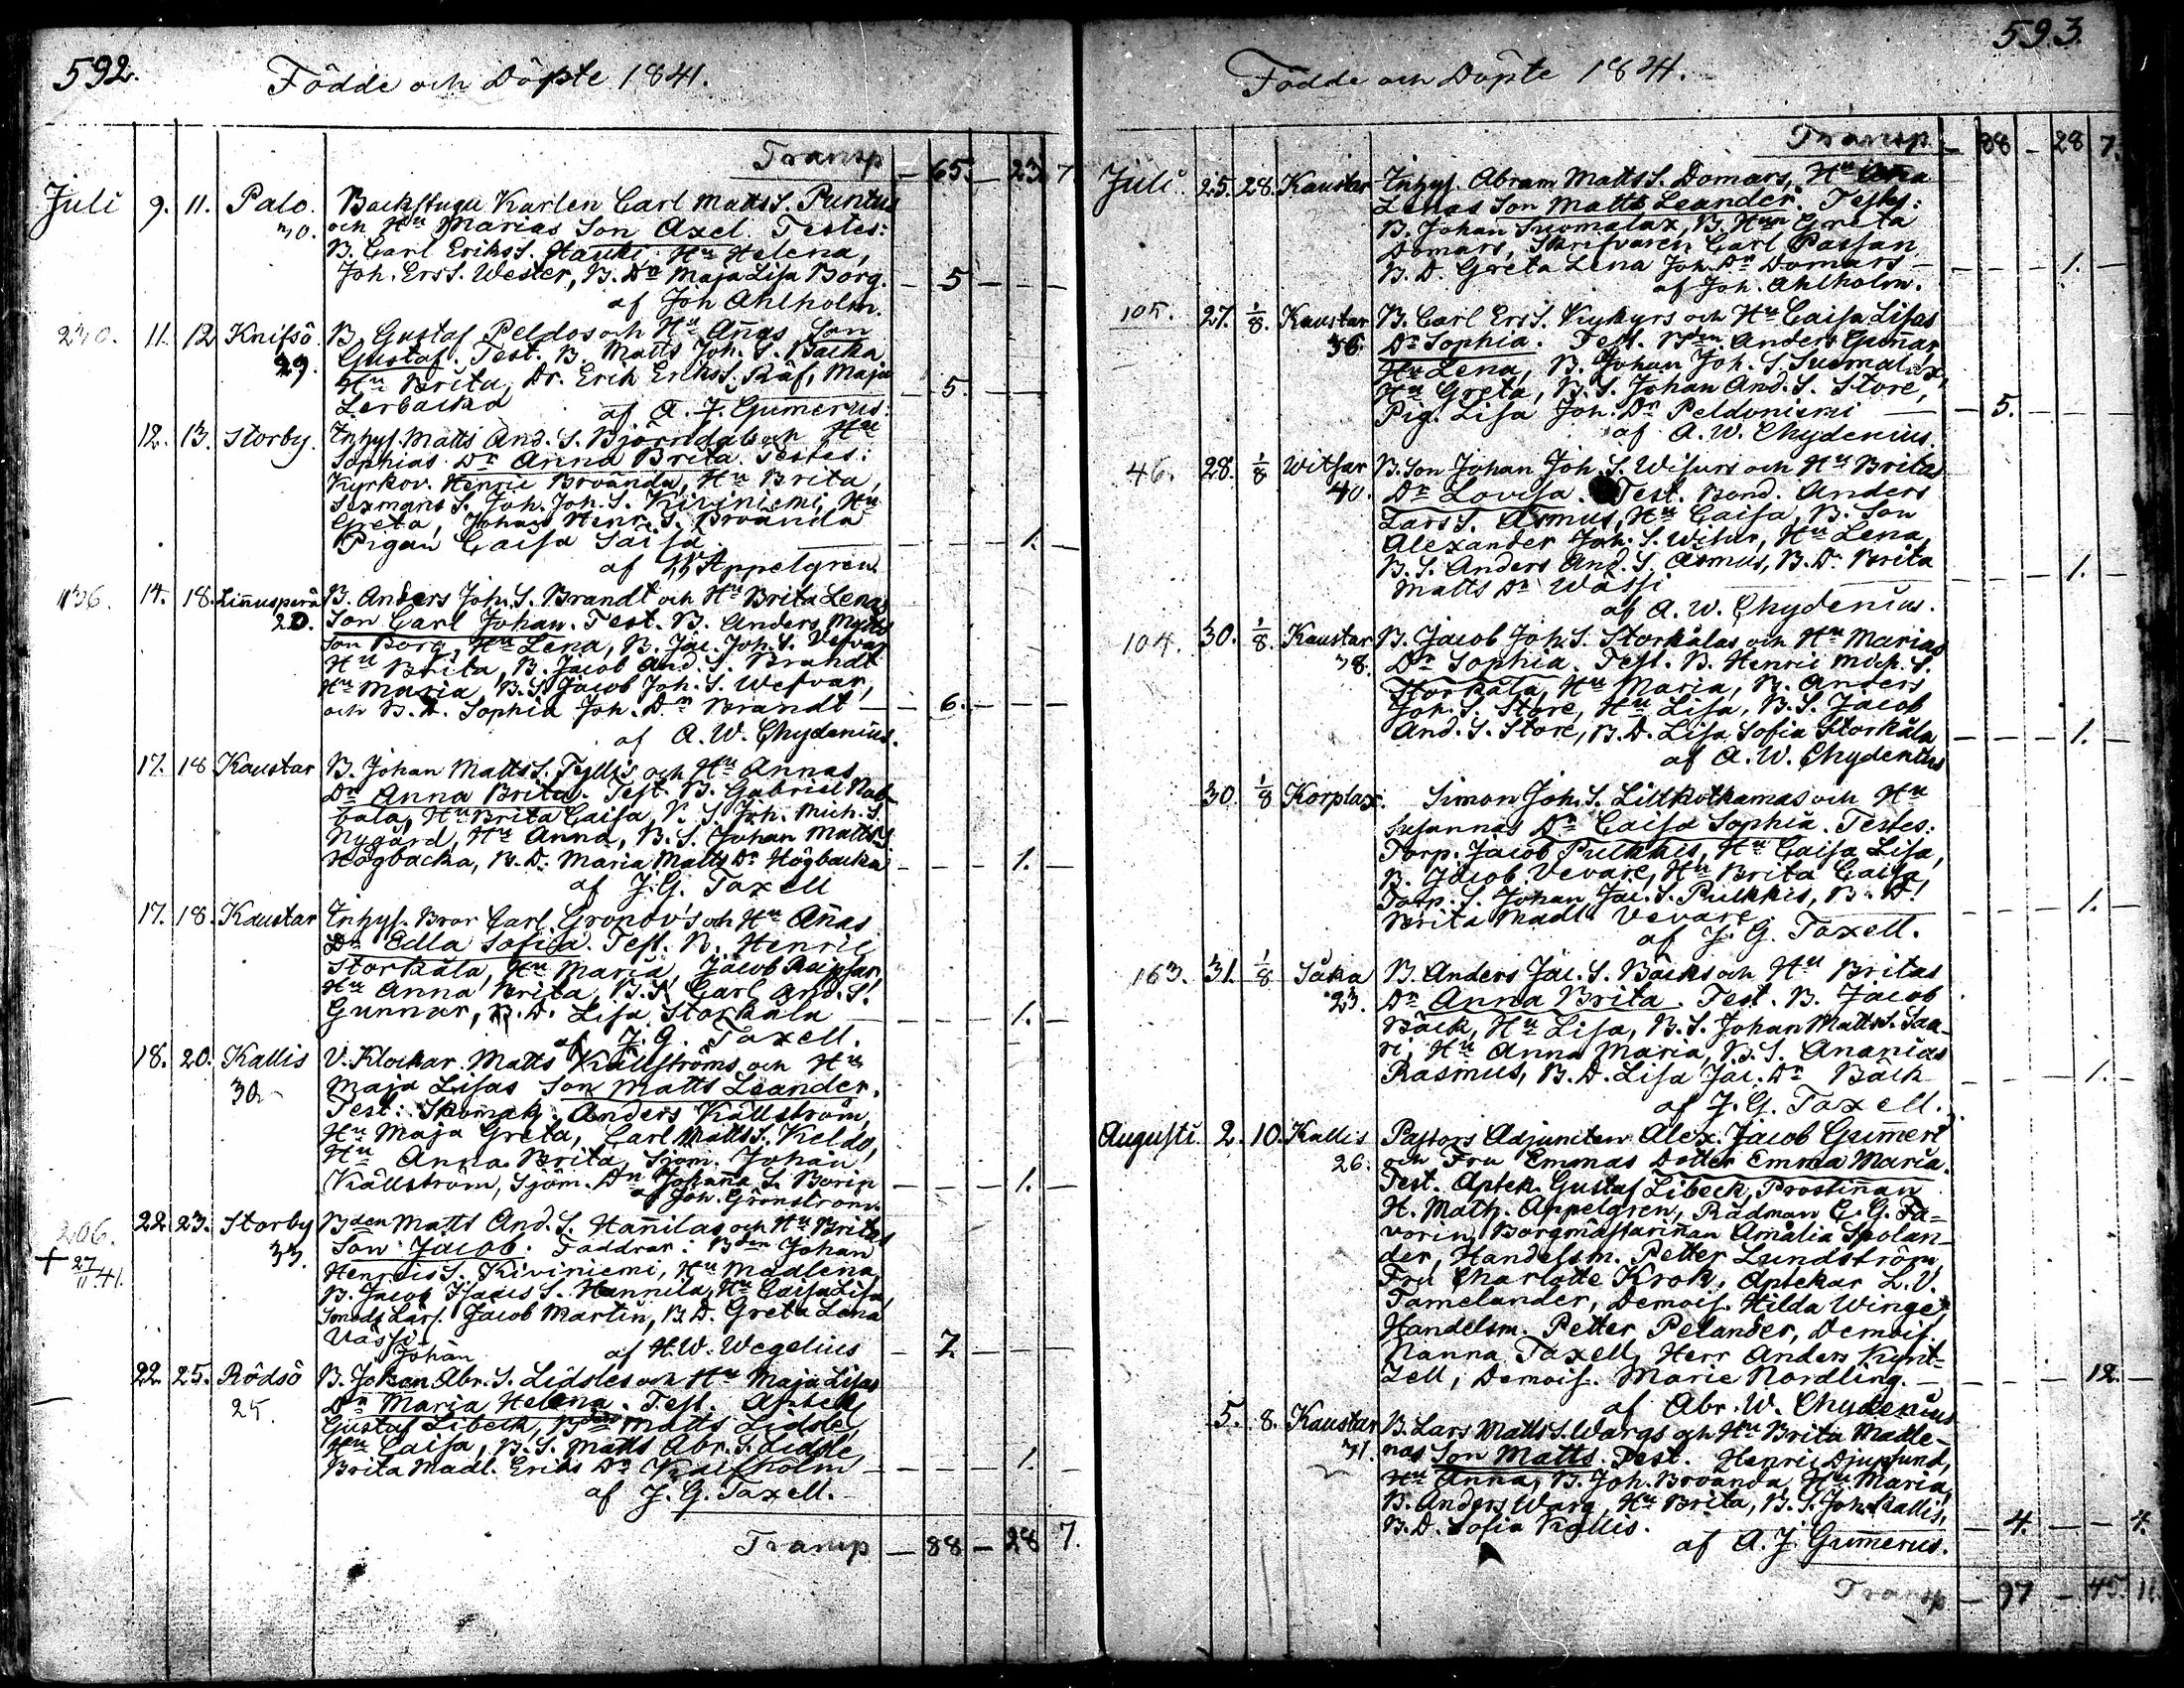 592.
Födde och Döpte 1841.
Transp — 65. — 23. 7
Juli 9. 11. Palo. Backstugu Karlen Carl Matts S. Puntus
30. och Hu Marias Son Axel. Testes:
B. Carl Eriks S. Hauki, Hu Helena,
Joh. Ers S. Wester, B. Dn Maja Lisa Borg. — 5 — — —
af Joh Ahlholm.
230. 11. 12 Knifsö B. Gustaf Peldos och Hu Annas Son
29. Gustaf. Test. B. Matts Joh. S. Backa
Hu Brita, Dr. Erik Eriks S. Räf, Maja
Lerbacka — 5. — — —
af A. J. Gumerus.
12. 13. Storby. Inhys. Matts And. S. Björndals och Hu
Sophias Dr Anna Brita. Testes:
Kyrkov. Henric Brovanda, Hu Brita,
Sexmans S. Joh. Joh. S. Kiviniemi, Hu
Greta, Johan Henr. S. Brovanda
Pigan Caisa Saisa. — — — 1. —
af W Appelgren
136. 14. 18. Linnusperä B. Anders Joh. S. Brandt och Hu Brita Lenas
20. Son Carl Johan. Test. B. Anders Matts
Son Borg, Hu Lena, B. Jac. Joh. S. Vefvar
Hu Brita, B. Jacob And. S. Brandt
Hu Maria, B. S. Jacob Joh. S. Wefvar,
och B. D. Sophia Joh. Dn Brandt — 6. — — —
af A. W. Chydenius.
17. 18 Kaustar B. Johan Matts S. Tyllis och Hu Annas
Dr Anna Brita. Test. B. Gabriel Rab-
bala, Hu Brita Caisa, B. S. Joh. Mich. S.
Nygård, Hu Anna, B. S. Johan Matts S.
Högbacka, B. D. Maria Matts Dr Högbacka — — — 1. —
af J. G. Taxell
17. 18. Kaustar Inhys. Bror Carl Gronov's och Hu Annas
Dr Edla Sofia. Test. B. Henric
Storkåla, Hu Maria, Jacob Reipsar,
Hu Anna Brita, B. S. Carl And. S.
Gunnar, B. D. Lisa Storkåla — — — 1. —
af J. G. Taxell.
18. 20. Kallis V. Klockar. Matts Källströms och Hu
30 Maja Lisas Son Matts Leander.
Test: Skomak. Anders Källström,
Hu Maja Greta, Carl Matts S. Keldo,
Hu Anna Brita, Sjöm. Johan
Källström, Sjöm. Dn Johana S. Borin — — — 1. —
af Joh. Grönström.
206. 22. 23. Storby Bden Matts And. S. Hannilas och Hu Britas
+ 27/11 41. 33. Son Jacob. Faddrar: Bden Johan
Henrics S. Kiviniemi, Hu Madlena,
B. Jacob Isacs S. Hannila, Hu Caisa Lisa,
Smeds Lärl. Jacob Martin, B. D. Greta Lena
Vässi — 7. — — —
Johan af H. W. Wegelius
22. 25. Rödsö B. Johan Abr. S. Lidsles och Hu Maja Lisas
25. Dn Maria Helena. Test. Aptek.
Gustaf Libeck, Bden Matts Lidsle,
Hu Caisa, B. S. Matts Abr. S. Lidsle
Brita Madl. Eriks Dn Kaifholm — — — 1. —
af J. G. Taxell.
Transp — 88 — 28 7.
593.
Födde och Döpte 1841.
Transp — 88 — 28 7.
Juli. 25. 28. Kaustar Inhys. Abram Matts S. Domars, Hu
Lenas Son Matts Leander. Testes:
B. Johan Suomalax, B. Hun Greta
Domars, Skrifvaren Carl Passan,
B. D. Greta Lena Joh. Dn Domars — — — 1. —
af Joh. Ahlholm.
105. 27. 1/8. Kaustar B. Carl Ers S. Kykyrs och Hu Caisa Lisas
36. Dr Sophia. Test. Bden Anders Gunnar,
Hu Lena, B. Johan Joh. S. Suomalax,
Hu Greta, B. S. Johan And. S. Store,
Pig. Lisa Joh. Dr Peldoniemi — 5. — — —
af A. W. Chydenius.
46. 28. 1/8 Witsar B. Son Johan Joh. S. Wisurs och Hu Britas
40. Dr Lovisa. Test. Bond. Anders
Lars S. Asmus, Hu Caisa, B. Son
Alexander Joh. S. Wisur, Hu Lena,
B. S. Anders And. S. Asmus, B. D. Brita
Matts Dn Wässi — — — 1. —
af A. W. Chydenius.
104. 30. 1/8. Kaustar B. Jacob Joh. S. Storkålas och Hu Marias
38. Dr Sophia. Test. B. Henric Mich. S.
Storkåla, Hu Maria, B. Anders
Joh. S. Store, Hu Lisa, B. S. Jacob
And. S. Store, B. D. Lisa Sofia Storkåla — — — 1. —
af A. W. Chydenius
30. 1/8 Korplax. Simon Joh. S. Lillkotkamas och Hu
Susannas Dr Caisa Sophia. Testes:
Torp. Jacob Pulkkis, Hu Caisa Lisa,
B. Jacob Vevare, Hu Brita Caisa,
Torp. S. Johan Jac. S. Pulkkis, B. D.
Brita Madl. Vevare — — — 1. —
af J. G. Taxell.
163. 31. 1/8 Såka B. Anders Jac. S. Bäcks och Hu Britas
23. Dr Anna Brita. Test. B. Jacob
Bäck, Hu Lisa, B. S. Johan Matts S. Saa-
ri, Hu Anna Maria, B. S. Ananias
Rasmus, B. D. Lisa Jac. Dr Bäck — — — 1. —
af J. G. Taxell.
Augusti. 2. 10. Kallis Pastors Adjuncten Alex. Jacob Gumeri
26. och Fru Emmas Dotter Emma Maria.
Test. Aptek. Gustaf Libeck, Prostinnan
H. Math. Appelgren, Rådman C. G. Fa-
vorin, Borgmästarinnan Amalia Spolan-
der, Handelsm. Petter Lundström,
Fru Charlotte Krok, Aptekar L. V.
Tamelander, Demois. Hilda Winge,
Handelsm. Petter Pelander, Demois.
Nanna Taxell, Herr Anders Kynt-
zell, Demois. Marie Nordling. — — — 12. —
af Abr. W. Chydenius
5. 8. Kaustar B. Lars Matts S. Wargs och Hu Brita Madle-
31. nas Son Matts. Test. Henric Djupsund,
Hu Anna, B. Joh. Brovanda, Hu Maria,
B. Anders Warg, Hu Brita, B. S. Joh. Kallis,
B. D. Sofia Kallis. — 4. — — 4.
af A. J. Gumerus.
Transp — 97 — 45. 11